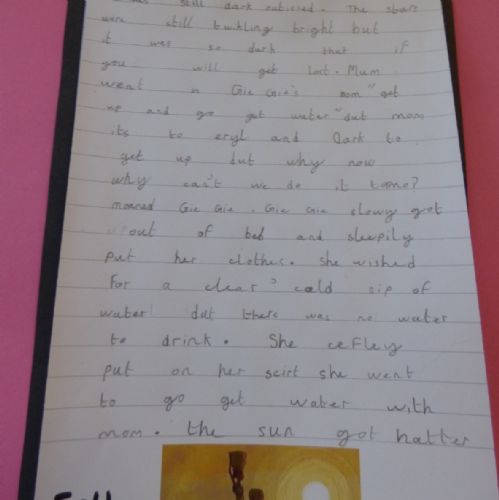 was still dark outsied. The stars
were still twikling bright but
it was so dark that if
you will get lost. Mum
went n Gie Gie's oom "get
up and go get water" dut mom
its to eryl and Dark to
get up dut why now
why can't we do it tomo?
moaned Gie Gie. Gie Gie slowy got
out of beb and sleepily
put her clothes. She wished
for a clear, cold sip of
water dut there was no water
to drink. She cefley
put on her scirt she went
to go get water with
mom. the sun got hatter